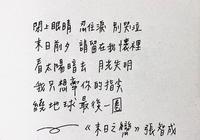 閉上眼睛 忍住淚 別哭泣
末日前夕 請留在我懷裡
看太陽暗去 月光失明
我只想牽你的指尖
繞地球最後一圈
《末日之戀》張智成